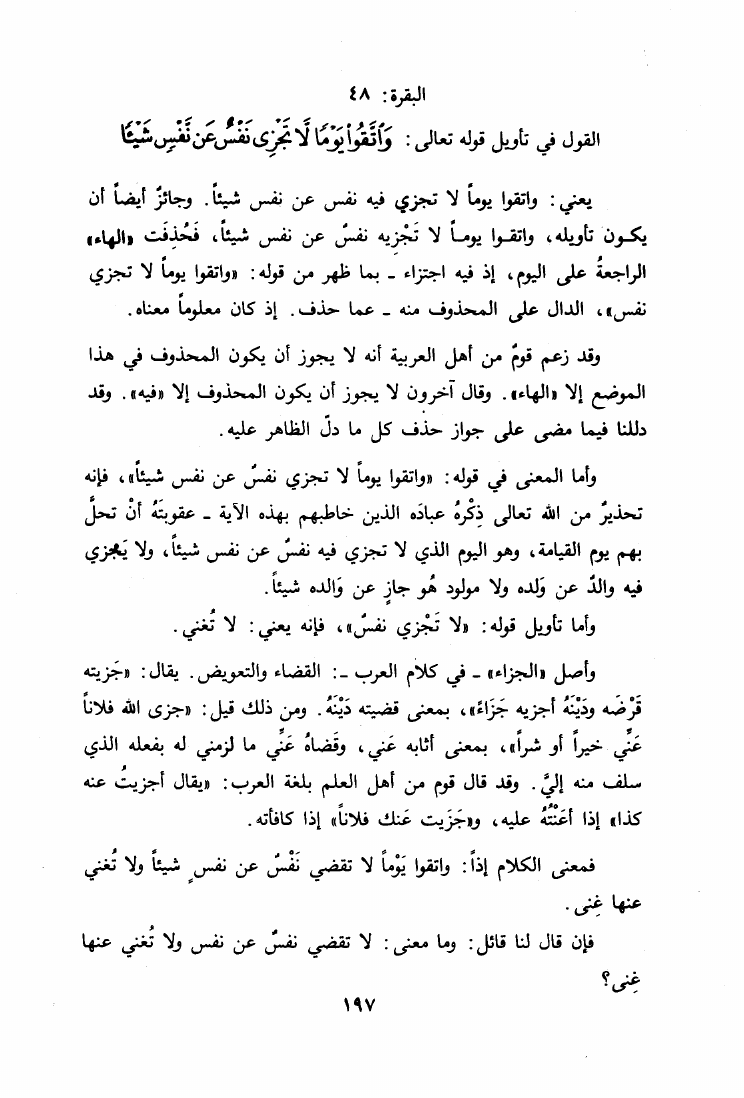 البقرة: ٤٨
القول في تأويل قوله تعالى: وَٱتَّقُوا۟ يَوْمًا لَّا تَجْزِى نَفْسٌ عَن نَّفْسٍ شَيْـًٔا
يعني: واتقوا يوماً لا تجزي فيه نفس عن نفس شيئاً. وجائزٌ أيضاً أن
يكون تأويله، واتقوا يوماً لا تَجْزِيه نفسٌ عن نفس شيئاً، فَحُذِفَت «الهاء»
الراجعةُ على اليوم، إذ فيه اجتزاء ـ بما ظهر من قوله: «واتقوا يوماً لا تجزي
نفس»، الدال على المحذوف منه ـ عما حذف. إذ كان معلوماً معناه.
وقد زعم قومٌ من أهل العربية أنه لا يجوز أن يكون المحذوف في هذا
الموضع إلا «الهاء». وقال آخرون لا يجوز أن يكون المحذوف إلا «فيه». وقد
دللنا فيما مضى على جواز حذف كل ما دلّ الظاهر عليه.
وأما المعنى في قوله: «واتقوا يوماً لا تجزي نفسٌ عن نفس شيئاً»، فإنه
تحذيرٌ من الله تعالى ذِكْرهُ عبادَه الذين خاطبهم بهذه الآية ـ عقوبتَهُ أنْ تحلَّ
بهم يوم القيامة، وهو اليوم الذي لا تجزي فيه نفسٌ عن نفس شيئاً، ولا يَجزي
فيه والدٌ عن وَلده ولا مولود هُو جازٍ عن وَالده شيئاً.
وأما تأويل قوله: «لا تَجْزي نفسٌ»، فإنه يعني: لا تُغني.
وأصل «الجزاء» ـ في كلام العرب ـ: القضاء والتعويض. يقال: «جَزيته
قَرْضَه ودَيْنَهُ أجزيه جَزَاءً»، بمعنى قضيته دَيْنَهُ. ومن ذلك قيل: «جزى الله فلاناً
عَنِّي خيراً أو شراً»، بمعنى أثابه عَني، وقَضاهُ عَنِّي ما لزمني له بفعله الذي
سلف منه إليَّ. وقد قال قوم من أهل العلم بلغة العرب: «يقال أجزيتُ عنه
كذا» إذا أعَنْتُهُ عليه، و«جَزَيت عَنك فلاناً» إذا كافأته.
فمعنى الكلام إذاً: واتقوا يَوْماً لا تقضي نَفْسٌ عن نفسٍ شيئاً ولا تُغني
عنها غِنى.
فإن قال لنا قائل: وما معنى: لا تقضي نفسٌ عن نفس ولا تُغني عنها
غِنى؟
١٩٧